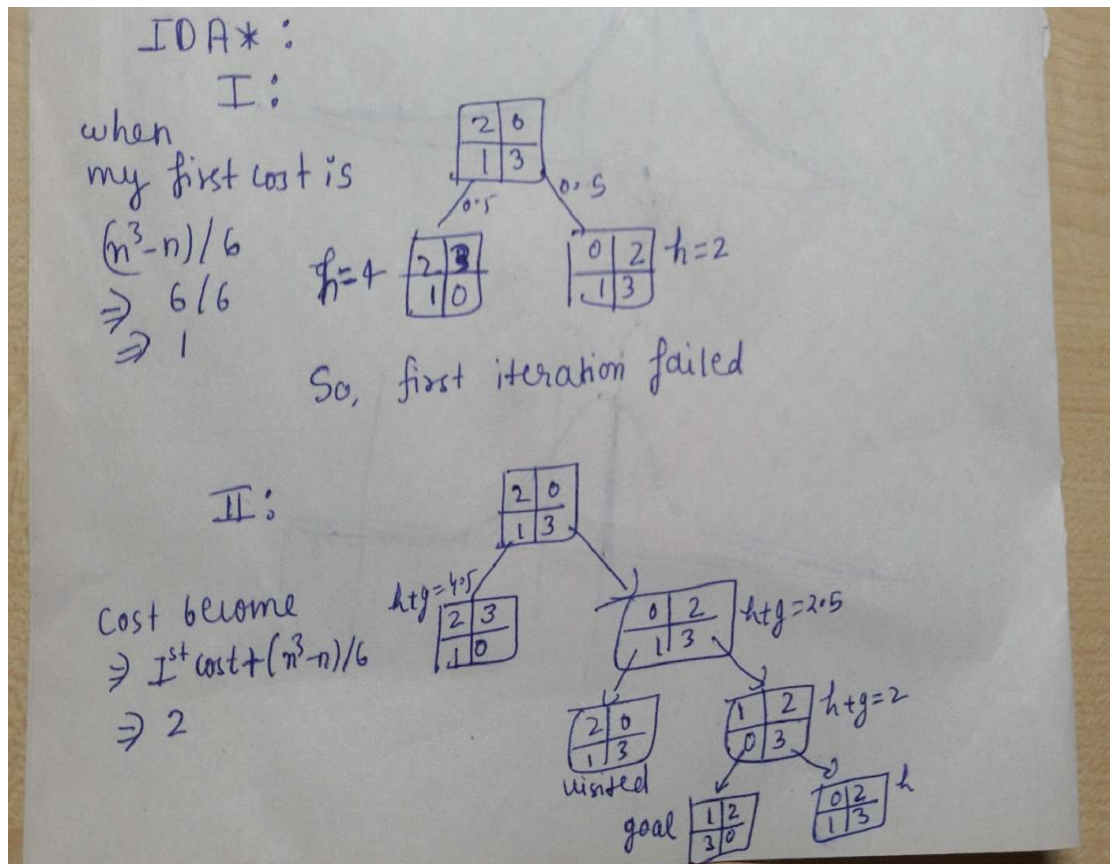 IDA* :
I :
when
my first cost is
(n³-n)/6
⇒ 6/6
⇒ 1
2 0
1 3
0.5 0.5
h=4
2 3
1 0
0 2
1 3
h=2
So, first iteration failed
II :
Cost become
⇒ Ist cost+(n³-n)/6
⇒ 2
2 0
1 3
h+g=4.5
2 3
1 0
0 2
1 3
h+g=2.5
2 0
1 3
visited
1 2
0 3
h+g=2
goal
1 2
3 0
0 2
1 3
h